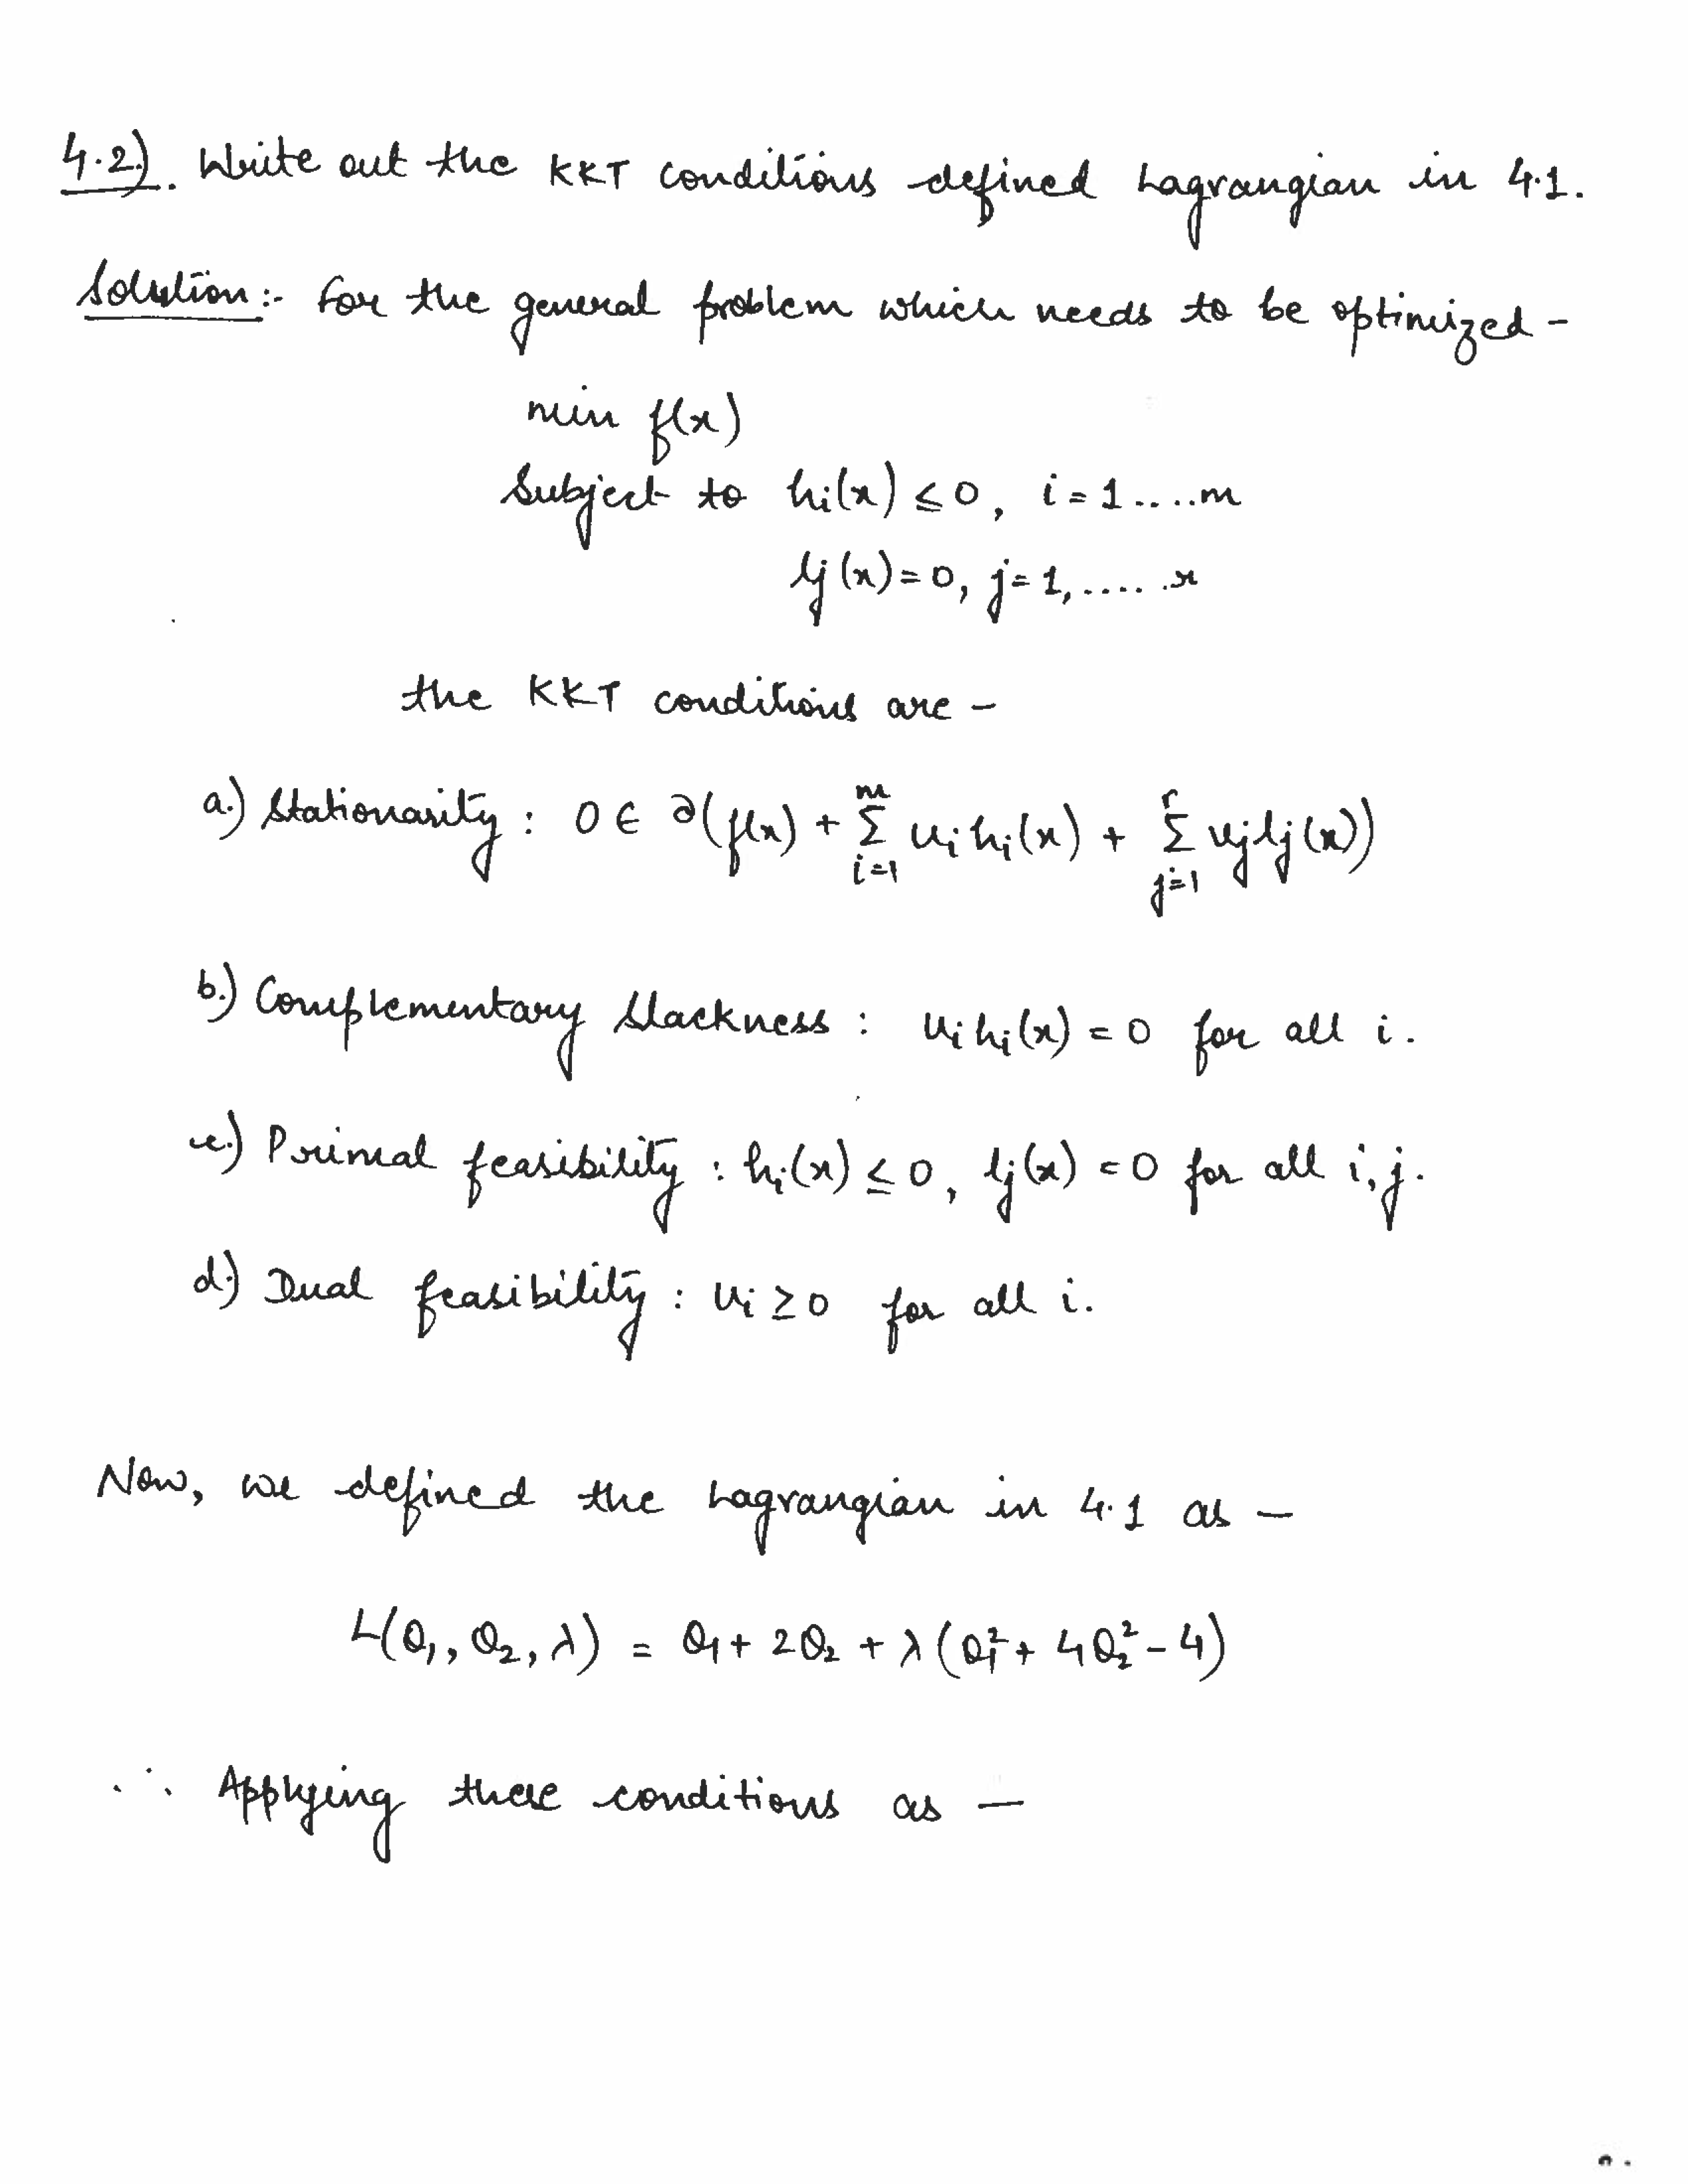 4.2). Write out the KKT conditions defined Lagrangian in 4.1.
Solution:- For the general problem which needs to be optimized -
min f(x)
Subject to hi(x) ≤ 0, i = 1....m
lj(x) = 0, j = 1, ..... r
the KKT conditions are -
a.) Stationarity : 0 ∈ ∂(f(x) + Σ_{i=1}^{m} ui hi(x) + Σ_{j=1}^{r} vj lj(x))
b.) Complementary Slackness : ui hi(x) = 0 for all i.
c.) Primal feasibility : hi(x) ≤ 0, lj(x) = 0 for all i,j.
d.) Dual feasibility : ui ≥ 0 for all i.
Now, we defined the Lagrangian in 4.1 as -
L(θ₁, θ₂, λ) = θ₁ + 2θ₂ + λ(θ₁² + 4θ₂² - 4)
∴ Applying these conditions as -